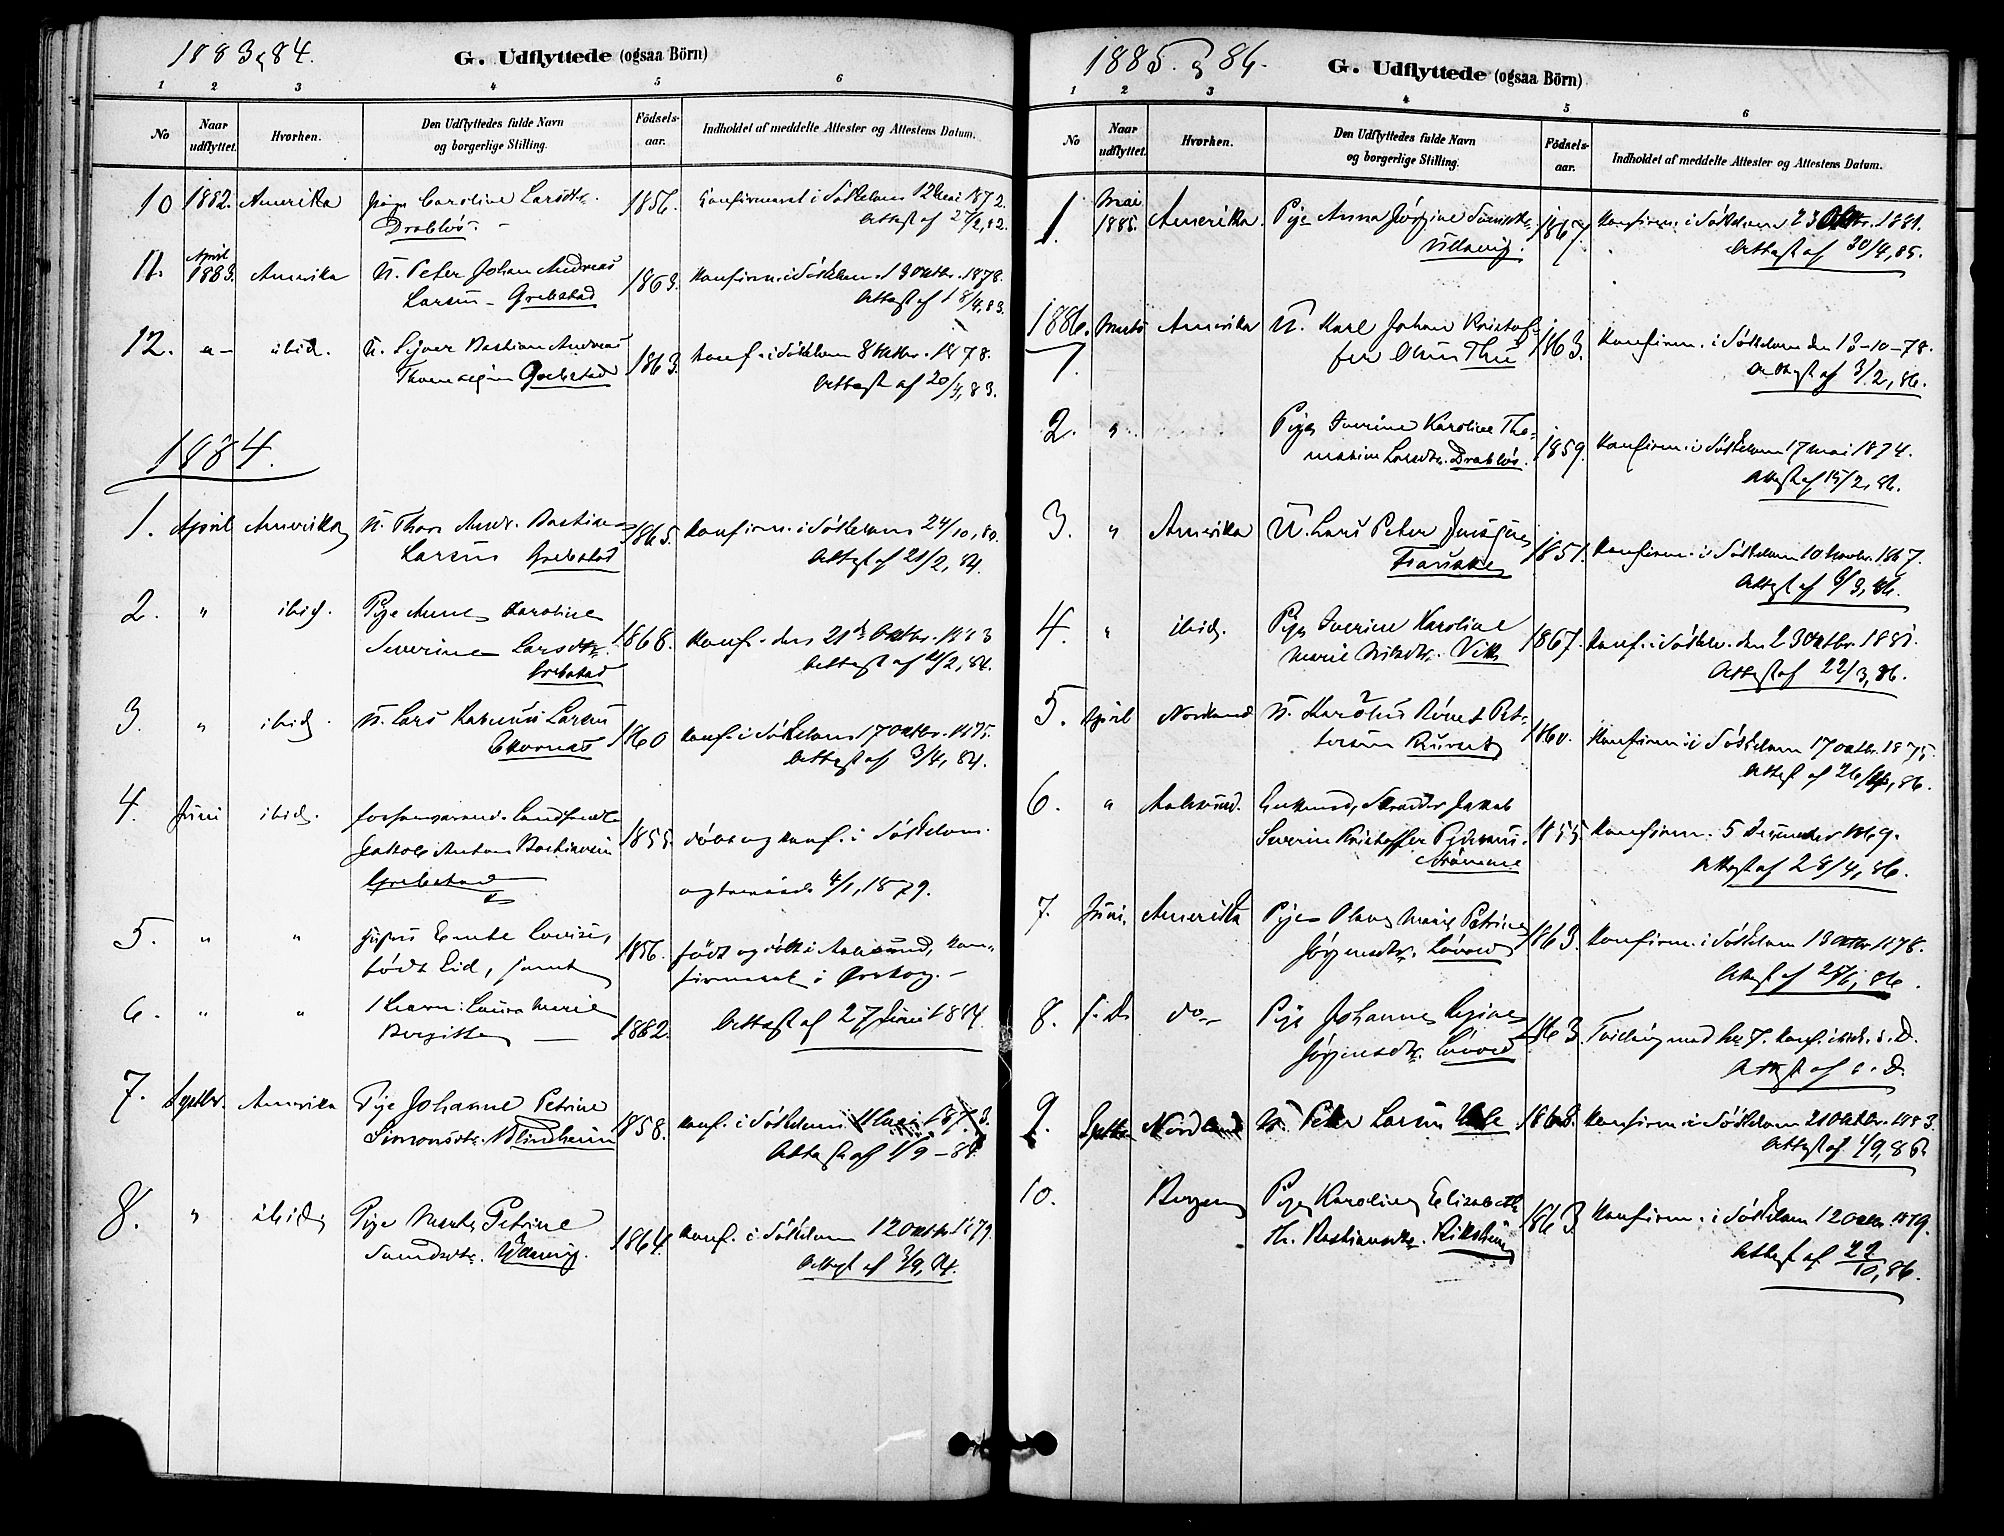 1883 & 84.
G. Udflyttede (ogsaa Börn)
1 2 3 4 5 6
No
Naar udflyttet.
Hvorhen.
Den Udflyttedes fulde Navn og borgerlige Stilling.
Födselsaar.
Indholdet af meddelte Attester og Attestens Datum.
10 1882. Amerika Pige Caroline Larsdtr. 1856. Konfirmeret i Sökelven 12 Mai 1872.
Drabløs. Attest af 27/2, 82.
11. April 1883. Amerika U. Peter Johan Andreas 1863. Konfirm. i Sökelven 13 Oktbr. 1878.
Larsen Grebstad Attest af 18/4, 83.
12. ibid. U. Sjver Bastian Andreas 1863. Konf. i Sökelven Oktbr. 1878.
Grebstad Attest af 20/4, 83.
1884.
1. April Amerika U. Thor Andr. Bastian 1865. Konfirm. i Sökelven 24/10, 80.
Larsen Grebstad Attest af 21/2, 84.
2. " ibid. Pige Anne Karoline 1868. Konf. den 21de Oktbr. 1883
Severine Larsdtr. Attest af 21/2, 84.
Grebstad
3. " ibid. U. Lars Rasmus Larsen 1860 Konf. i Sökelven 17 Oktbr. 1875.
Attest af 3/4, 84.
4. Juni ibid. forhenværende Landhandler 1855. döbt og konf. i Sökelven
Jakob Anton Bastiansen
Grebstad 4/1, 1879.
5. " " Hustru Emte Lovise, 1856. født og döbt i Aalesund, kon-
født Eid, samt firmeret i Ørskog.
6. " " 1 Barn: Laura Marie 1882. Attest af 27 Juni 1884.
Bergitte
7. Septbr. Amerika Pige Johanne Petrine 1858. Konf. i Sökelven Mai 1873.
Simonsdtr. Blindheim Attest af 1/9 - 84.
8. " ibid. Pige Marte Petrine 1864. Konf. i Sökelven 12 Oktbr. 1879.
Attest af 3/9, 84.
1885. & 86.
G. Udflyttede (ogsaa Börn)
1 2 3 4 5 6
No
Naar udflyttet.
Hvorhen.
Den Udflyttedes fulde Navn og borgerlige Stilling.
Födselsaar.
Indholdet af meddelte Attester og Attestens Datum.
1. Mai 1885. Amerika. Pige Anna Jørgine 1867 Konfirm. i Sökelven 23 Oktbr. 1881.
Attest af 30/4, 85.
1886. Marts Amerika U. Karl Johan Kristof- 1863. Konfirm. i Sökelven den 13-10-78.
1 fer Olsen Attest af 3/2, 86.
2. " Pige Iverine Karoline Tho- 1859. Konfirm. i Sökelven 17 Mai 1874.
masine Larsdtr. Drabløs. Attest af 15/2, 86.
3. " Amerika U. Lars Peter 1851. Konfirm. i Sökelven 10 Novbr. 1867.
Attest af 9/3, 86.
4. " ibid. Pige Iverine Karoline 1867. Konf. i Sökelv. den 23 Oktbr. 1881.
Marie Nilsdtr. Vik Attest af 22/3, 86.
5. April Nordland U. Karolus Pet- 1860. Konfirm. i Sökelven 17 Oktbr. 1875.
tersen Attest af 26/4, 86.
6. " Aalesund. Jakob
Severin Kristoffer 1855 Konfirm. 5 December 1869.
Strømme Attest af 28/4, 86.
7. Juni. Amerika Pige Olava Marie Petrine 1863. Konfirm. i Sökelven 13 Oktbr. 1878.
Jørgensdtr. Løvold Attest af 25/6, 86.
8. s. D. do Pige Johanne Regine 1863. Tvilling med No 7. Konf. ibid. s. D.
Jørgensdtr. Løvold Attest af s. D.
9. Septbr. Nordland U. Peter Larsen 1868. Konfirm. i Sökelven 21 Oktbr. 1883.
Attest af 1/9, 86.
10. Bergen Pige Karoline Elisabeth 1863. Konfirm. i Sökelven 12 Oktbr. 1879.
Th. Bastiansdtr. Attest af 22/10, 86.